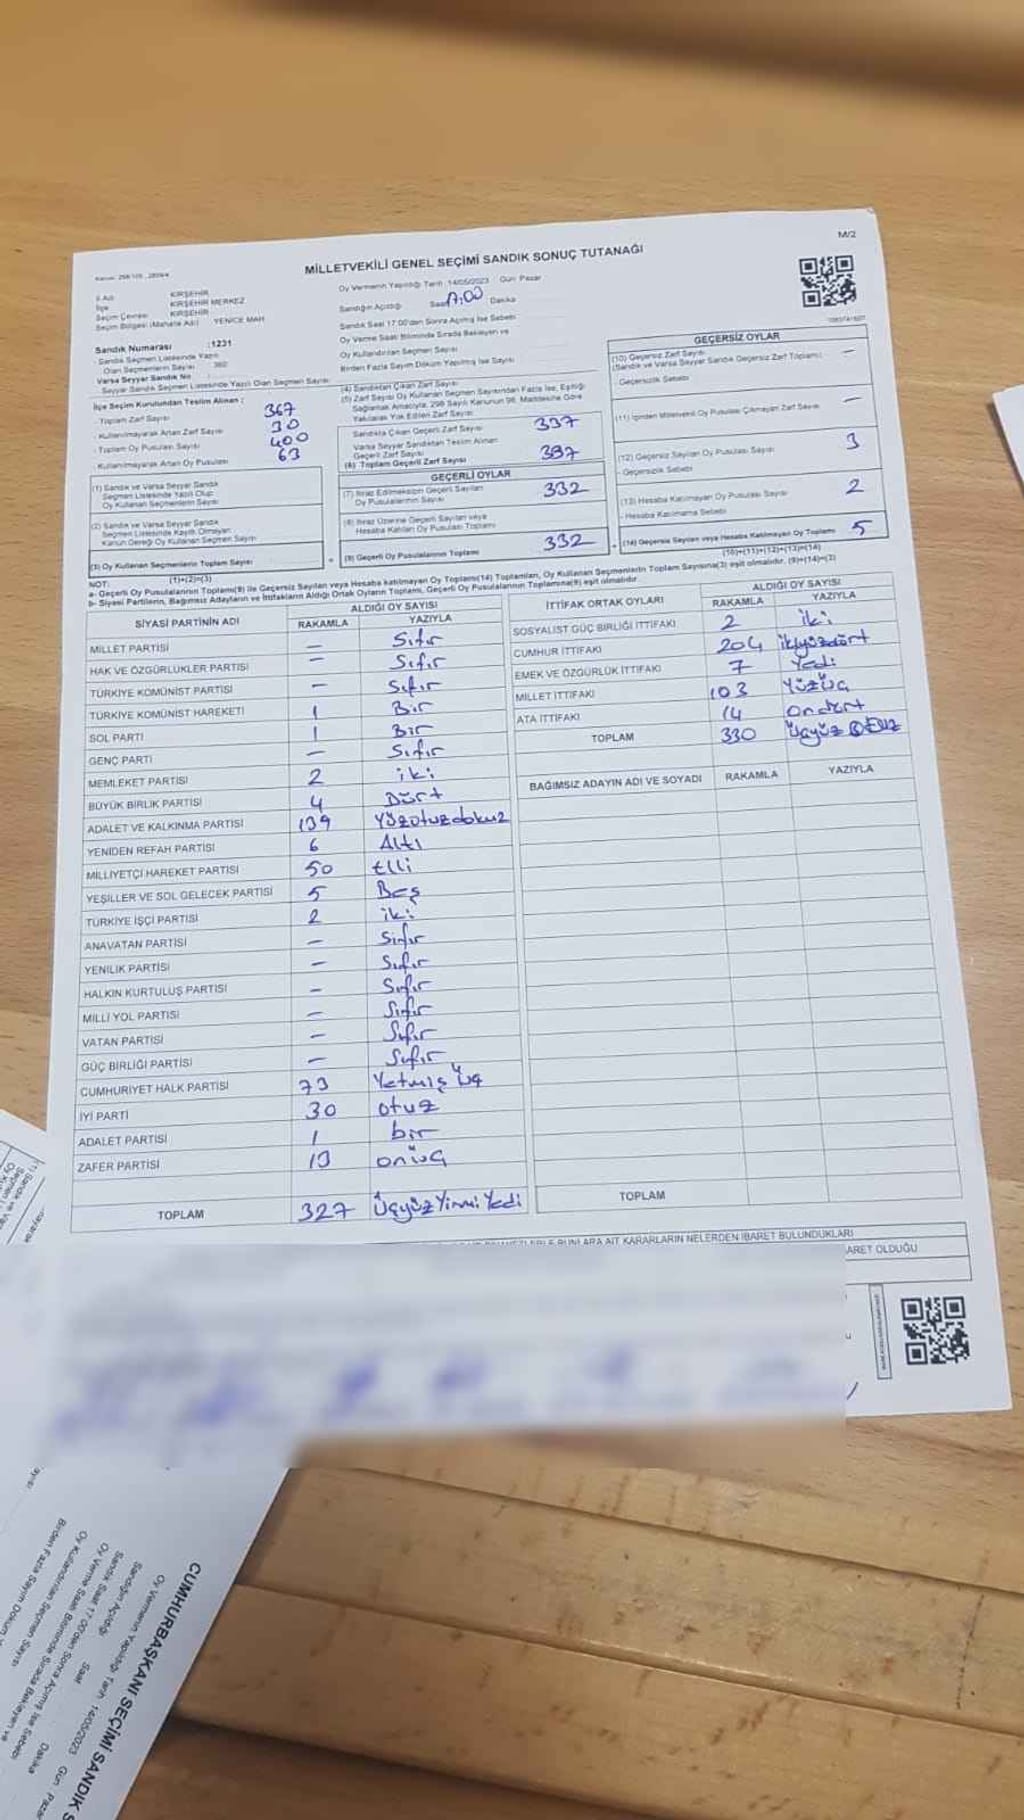 M/2
MİLLETVEKİLİ GENEL SEÇİMİ SANDIK SONUÇ TUTANAĞI
İl Adı KIRŞEHİR
İlçe KIRŞEHİR MERKEZ
Seçim Çevresi KIRŞEHİR
Seçim Bölgesi (Mahalle Adı) YENİCE MAH
Sandık Numarası :1231
Sandık Seçmen Listesinde Yazılı
Olan Seçmenlerin Sayısı 360
Varsa Seyyar Sandık No
Seyyar Sandık Seçmen Listesinde Yazılı Olan Seçmen Sayısı
İlçe Seçim Kurulundan Teslim Alınan :
Toplam Zarf Sayısı 367
Kullanılmayarak Artan Zarf Sayısı 30
Toplam Oy Pusulası Sayısı 400
Kullanılmayarak Artan Oy Pusulası 63
(1) Sandık ve Varsa Seyyar Sandık
Seçmen Listesinde Yazılı Olup
Oy Kullanan Seçmenlerin Sayısı
(2) Sandık ve Varsa Seyyar Sandık
Seçmen Listesinde Kayıtlı Olmayan
Kanun Gereği Oy Kullanan Seçmen Sayısı
(3) Oy Kullanan Seçmenlerin Toplam Sayısı
(1)+(2)=(3)
Oy Vermenin Yapıldığı Tarih 14/05/2023 Gün Pazar
Sandığın Açıldığı Saat 17:00 Dakika
Sandık Saat 17.00'den Sonra Açılmış İse Sebebi
Oy Verme Saati Bitiminde Sırada Bekleyen ve
Oy Kullandırılan Seçmen Sayısı
Birden Fazla Sayım Döküm Yapılmış İse Sayısı
(4) Sandıktan Çıkan Zarf Sayısı
(5) Zarf Sayısı Oy Kullanan Seçmen Sayısından Fazla İse, Eşitliği
Sağlamak Amacıyla, 298 Sayılı Kanunun 98. Maddesine Göre
Yakılarak Yok Edilen Zarf Sayısı
Sandıkta Çıkan Geçerli Zarf Sayısı 337
Varsa Seyyar Sandıktan Teslim Alınan
Geçerli Zarf Sayısı
(6) Toplam Geçerli Zarf Sayısı 337
GEÇERLİ OYLAR
(7) İtiraz Edilmeksizin Geçerli Sayılan
Oy Pusulalarının Sayısı 332
(8) İtiraz Üzerine Geçerli Sayılan veya
Hesaba Katılan Oy Pusulası Toplamı
(9) Geçerli Oy Pusulalarının Toplamı 332
GEÇERSİZ OYLAR
(10) Geçersiz Zarf Sayısı —
(Sandık ve Varsa Seyyar Sandık Geçersiz Zarf Toplamı)
Geçersizlik Sebebi
(11) İçinden Milletvekili Oy Pusulası Çıkmayan Zarf Sayısı —
(12) Geçersiz Sayılan Oy Pusulası Sayısı 3
- Geçersizlik Sebebi
(13) Hesaba Katılmayan Oy Pusulası Sayısı 2
- Hesaba Katılmama Sebebi
(14) Geçersiz Sayılan veya Hesaba Katılmayan Oy Toplamı 5
(10)+(11)+(12)+(13)=(14)
NOT:
a- Geçerli Oy Pusulalarının Toplamı(9) ile Geçersiz Sayılan veya Hesaba katılmayan Oy Toplamı(14) Toplamları, Oy Kullanan Seçmenlerin Toplam Sayısına(3) eşit olmalıdır. (9)+(14)=(3)
b- Siyasi Partilerin, Bağımsız Adayların ve İttifakların Aldığı Ortak Oyların Toplamı, Geçerli Oy Pusulalarının Toplamına(9) eşit olmalıdır.
SİYASİ PARTİNİN ADI ALDIĞI OY SAYISI
RAKAMLA YAZIYLA
MİLLET PARTİSİ — Sıfır
HAK VE ÖZGÜRLÜKLER PARTİSİ — Sıfır
TÜRKİYE KOMÜNİST PARTİSİ — Sıfır
TÜRKİYE KOMÜNİST HAREKETİ 1 Bir
SOL PARTİ 1 Bir
GENÇ PARTİ — Sıfır
MEMLEKET PARTİSİ 2 iki
BÜYÜK BİRLİK PARTİSİ 4 Dört
ADALET VE KALKINMA PARTİSİ 139 Yüzotuzdokuz
YENİDEN REFAH PARTİSİ 6 Altı
MİLLİYETÇİ HAREKET PARTİSİ 50 Elli
YEŞİLLER VE SOL GELECEK PARTİSİ 5 Beş
TÜRKİYE İŞÇİ PARTİSİ 2 iki
ANAVATAN PARTİSİ — Sıfır
YENİLİK PARTİSİ — Sıfır
HALKIN KURTULUŞ PARTİSİ — Sıfır
MİLLİ YOL PARTİSİ — Sıfır
VATAN PARTİSİ — Sıfır
GÜÇ BİRLİĞİ PARTİSİ — Sıfır
CUMHURİYET HALK PARTİSİ 73 Yetmiş üç
İYİ PARTİ 30 otuz
ADALET PARTİSİ 1 bir
ZAFER PARTİSİ 13 onüç
TOPLAM 327 ÜçyüzYirmiYedi
İTTİFAK ORTAK OYLARI ALDIĞI OY SAYISI
RAKAMLA YAZIYLA
SOSYALİST GÜÇ BİRLİĞİ İTTİFAKI 2 iki
CUMHUR İTTİFAKI 204 ikiyüzdört
EMEK VE ÖZGÜRLÜK İTTİFAKI 7 Yedi
MİLLET İTTİFAKI 103 Yüzüç
ATA İTTİFAKI 14 ondört
TOPLAM 330 Üçyüz
BAĞIMSIZ ADAYIN ADI VE SOYADI RAKAMLA YAZIYLA
TOPLAM
BUNLARA AİT KARARLARIN NELERDEN İBARET BULUNDUKLARI
ARET OLDUĞU
CUMHURBAŞKANI SEÇİMİ SANDIK S
Oy Vermenin Yapıldığı Tarih 14/05/2023 Gün Pazar
Sandığın Açıldığı Saat Dakika
Sandık Saat 17.00'den Sonra Açılmış İse Sebebi
Oy Verme Saati Bitiminde Sırada Bekleyen ve
Oy Kullandırılan Seçmen Sayısı
Birden Fazla Sayım Döküm